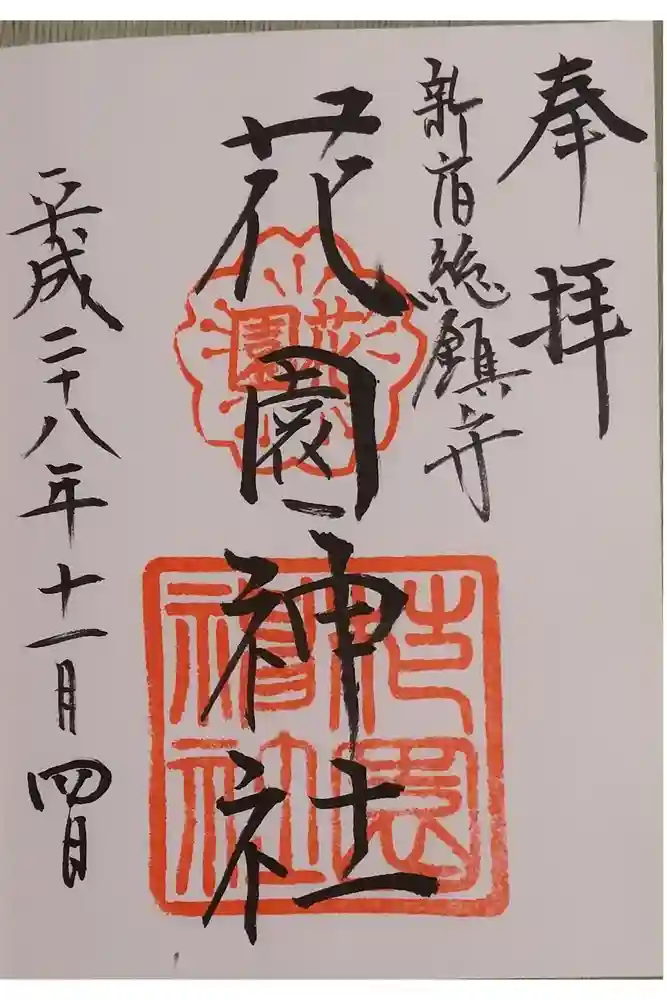 奉拝
新宿総鎮守
花園神社
花園
花園神社
平成二十八年十一月四日